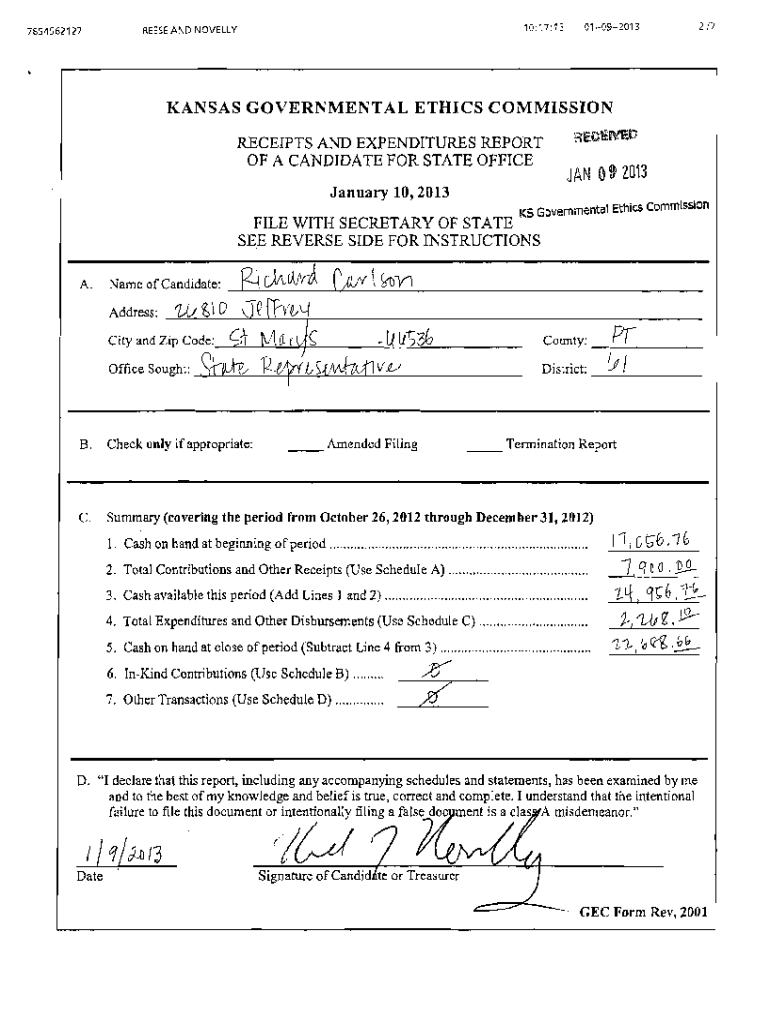 7854562127 REESE AND NOVELLY 10:17:13 01-09-2013 2/7
KANSAS GOVERNMENTAL ETHICS COMMISSION
RECEIPTS AND EXPENDITURES REPORT
OF A CANDIDATE FOR STATE OFFICE
RECEIVED
JAN 09 2013
January 10, 2013
KS Governmental Ethics Commission
FILE WITH SECRETARY OF STATE
SEE REVERSE SIDE FOR INSTRUCTIONS
A. Name of Candidate: Richard Carlson
Address: 26810 Jeffrey
City and Zip Code: St Marys -66536 County: PT
Office Sought: State Representative District: 61
B. Check only if appropriate: Amended Filing Termination Report
C. Summary (covering the period from October 26, 2012 through December 31, 2012)
1. Cash on hand at beginning of period 17,056.76
2. Total Contributions and Other Receipts (Use Schedule A) 7,900.00
3. Cash available this period (Add Lines 1 and 2) 24,956.76
4. Total Expenditures and Other Disbursements (Use Schedule C) 2,268.10
5. Cash on hand at close of period (Subtract Line 4 from 3) 22,688.66
6. In-Kind Contributions (Use Schedule B) Ø
7. Other Transactions (Use Schedule D) Ø
D. “I declare that this report, including any accompanying schedules and statements, has been examined by me
and to the best of my knowledge and belief is true, correct and complete. I understand that the intentional
failure to file this document or intentionally filing a false document is a class A misdemeanor.”
1/9/2013 Novelly
Date Signature of Candidate or Treasurer
GEC Form Rev, 2001